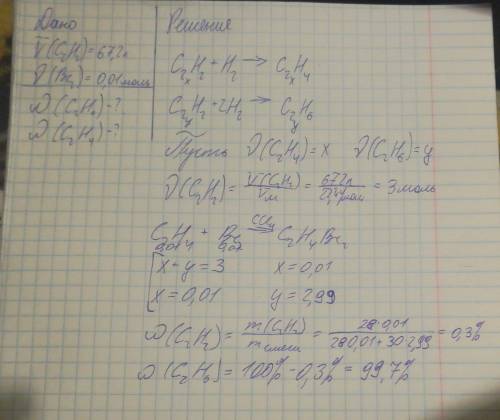 Дано
V(C₂H₂)=67,2л
ν(Br₂)=0,01моль
ω(C₂H₆)-?
ω(C₂H₄)-?
Решение
C₂H₂ + H₂ → C₂H₄
x x
C₂H₂ + 2H₂ → C₂H₆
y y
Пусть ν(C₂H₄)=x ν(C₂H₆)=y
ν(C₂H₂) = V(C₂H₂)/Vм = 67,2л/22,4л/моль = 3моль
C₂H₄ + Br₂ →(CCl₄) C₂H₄Br₂
0,01 0,01
x+y=3 x=0,01
x=0,01 y=2,99
ω(C₂H₂) = m(C₂H₂)/mсмеси = 28·0,01/28·0,01+30·2,99 = 0,3%
ω(C₂H₆) = 100% - 0,3% = 99,7%